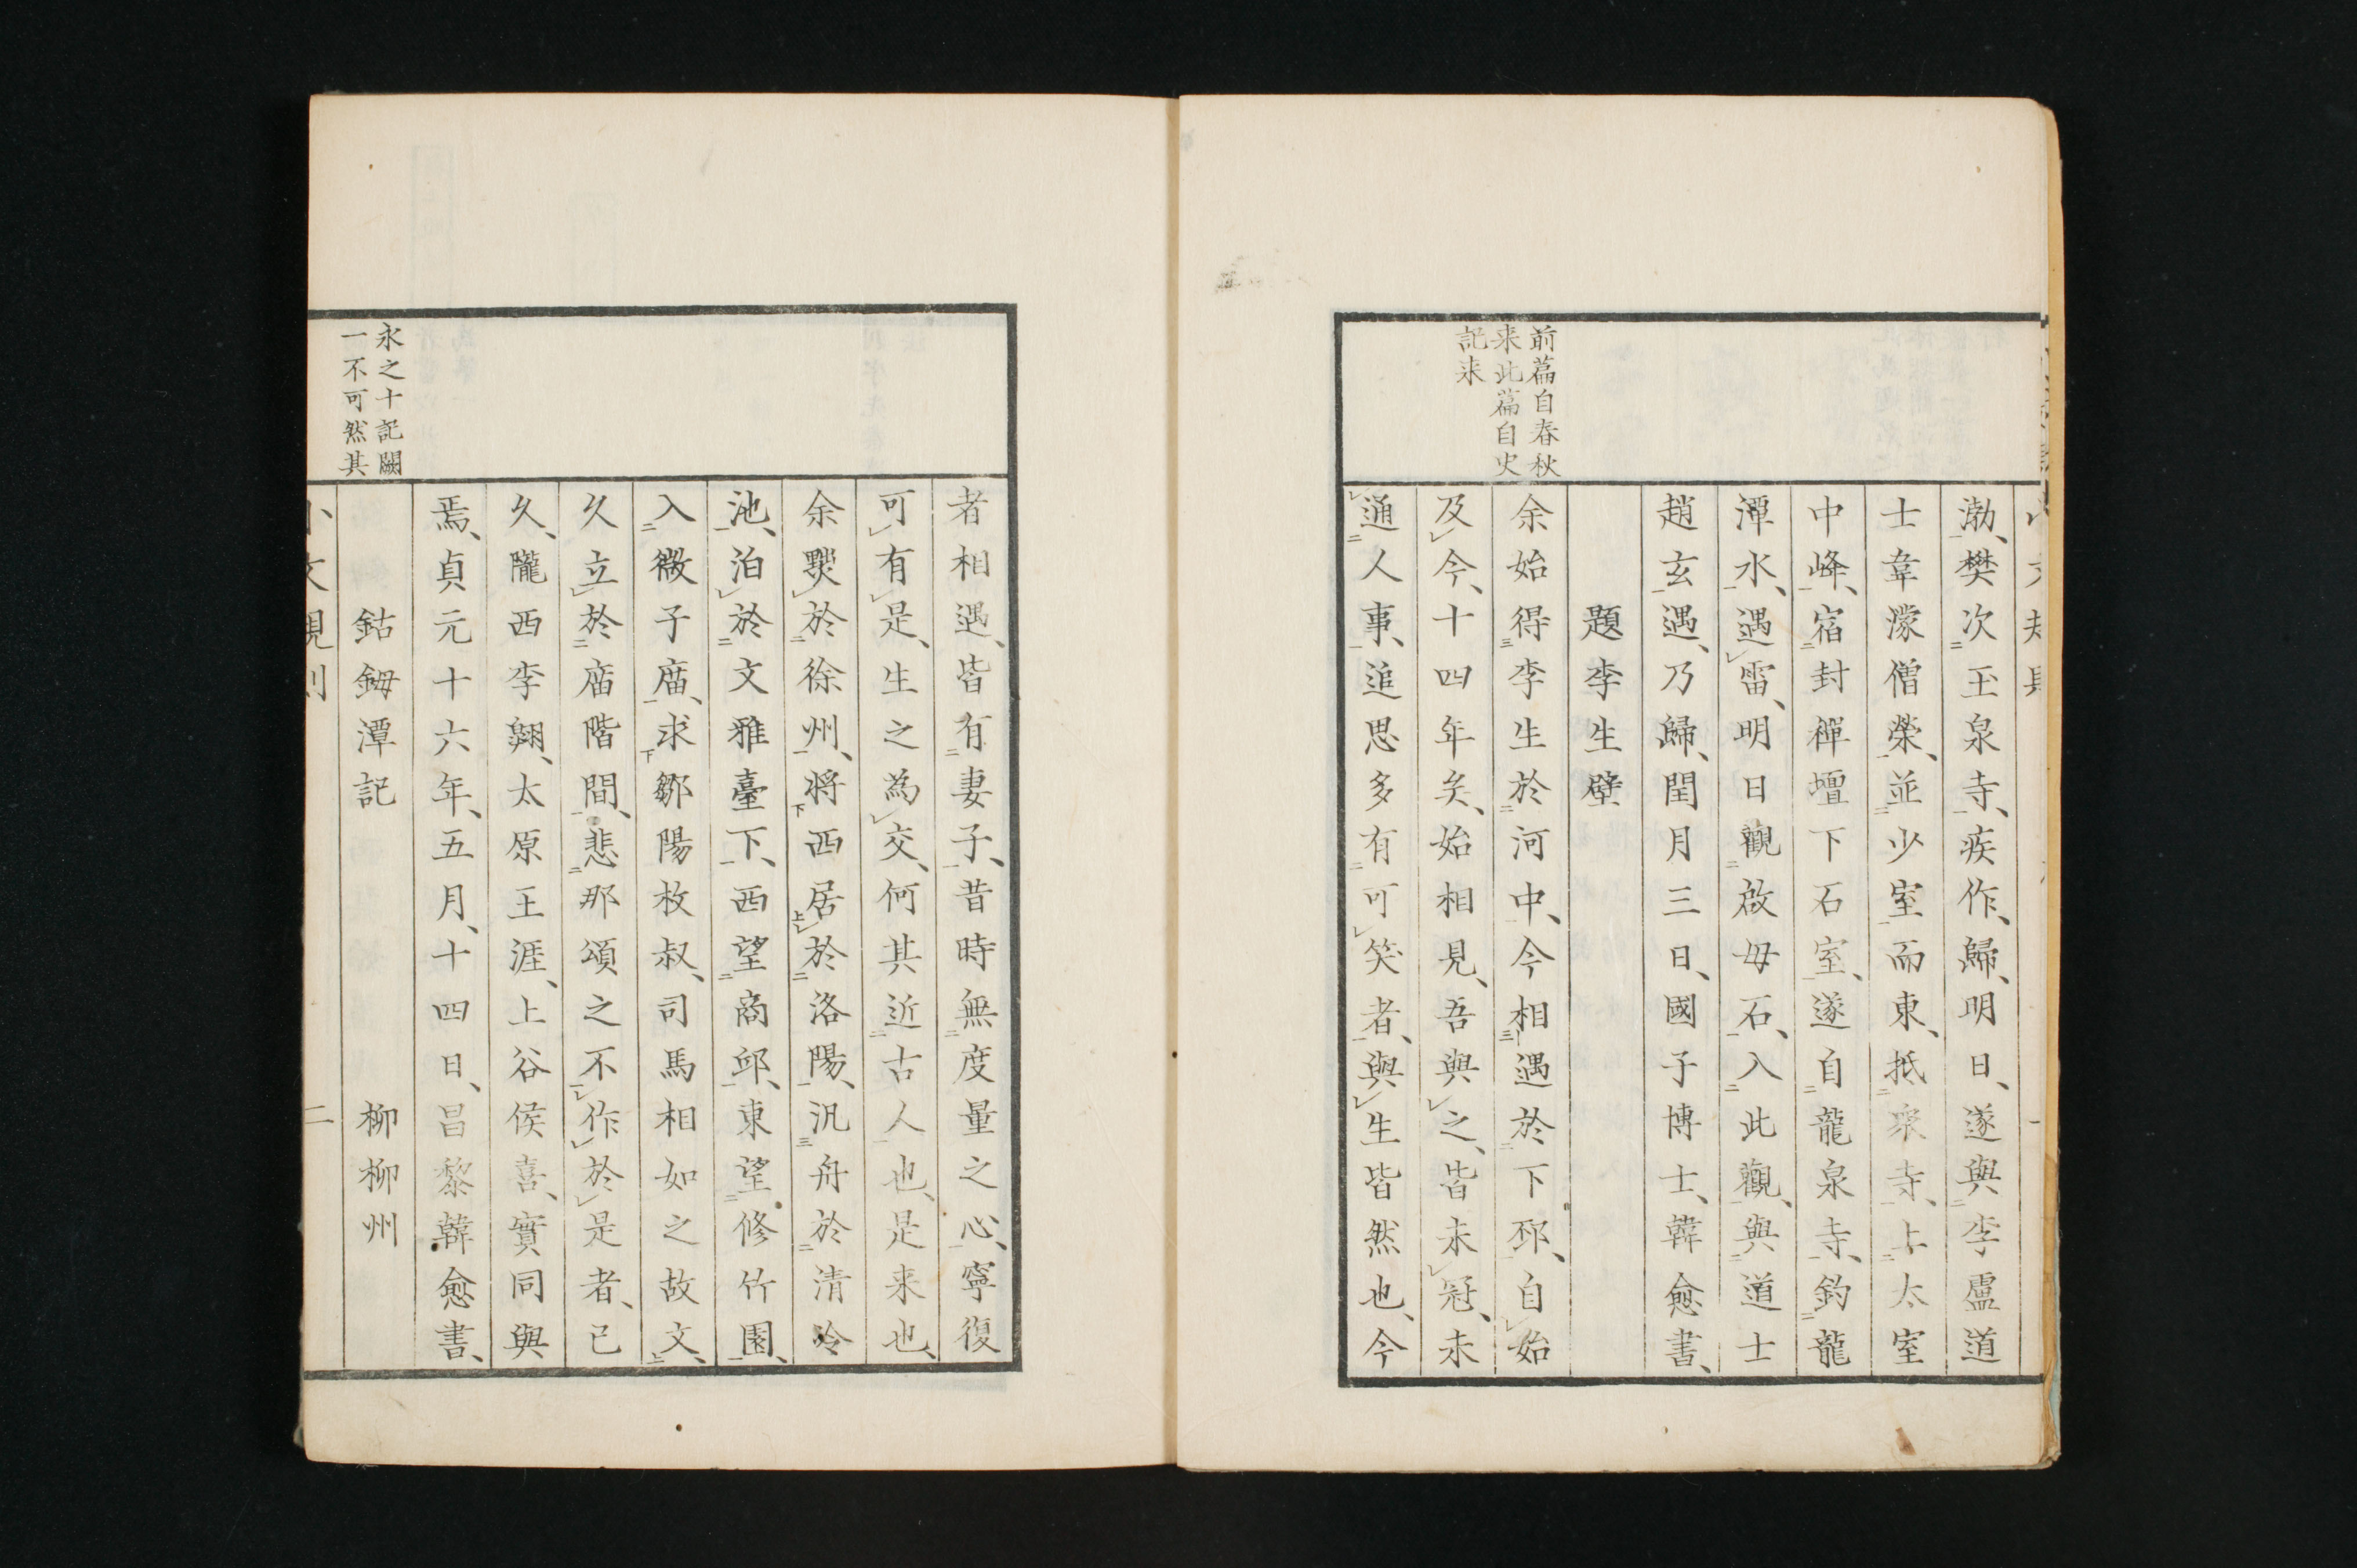 前篇自春秋
来此篇自史
記来
渤、樊次玉泉寺、疾作、歸、明日、遂與李盧道
士韋濛僧榮、並少室而東、抵衆寺、上太室
中峰、宿封禪壇下石室、遂自龍泉寺、釣龍
潭水、遇雷、明日觀啟母石、入此觀、與道士
趙玄遇、乃歸、閏月三日、國子博士、韓愈書、
題李生壁
余始得李生於河中、今相遇於下邳、自始
及今、十四年矣、始相見、吾與之、皆未冠、未
通人事、追思多有可笑者、與生皆然也、今
者相遇、皆有妻子、昔時無度量之心、寧復
可有是、生之為交、何其近古人也、是来也、
余黙於徐州、将西居於洛陽、汎舟於清泠
池、泊於文雅臺下、西望商邱、東望修竹園、
入微子廟、求鄒陽枚叔、司馬相如之故文、
久立於廟階間、悲那頌之不作於是者、已
久、隴西李翺、太原王涯、上谷侯喜、實同與
焉、貞元十六年、五月、十四日、昌黎韓愈書、
永之十記闕
一不可然其
鈷鉧潭記 柳柳州
小文規則 二